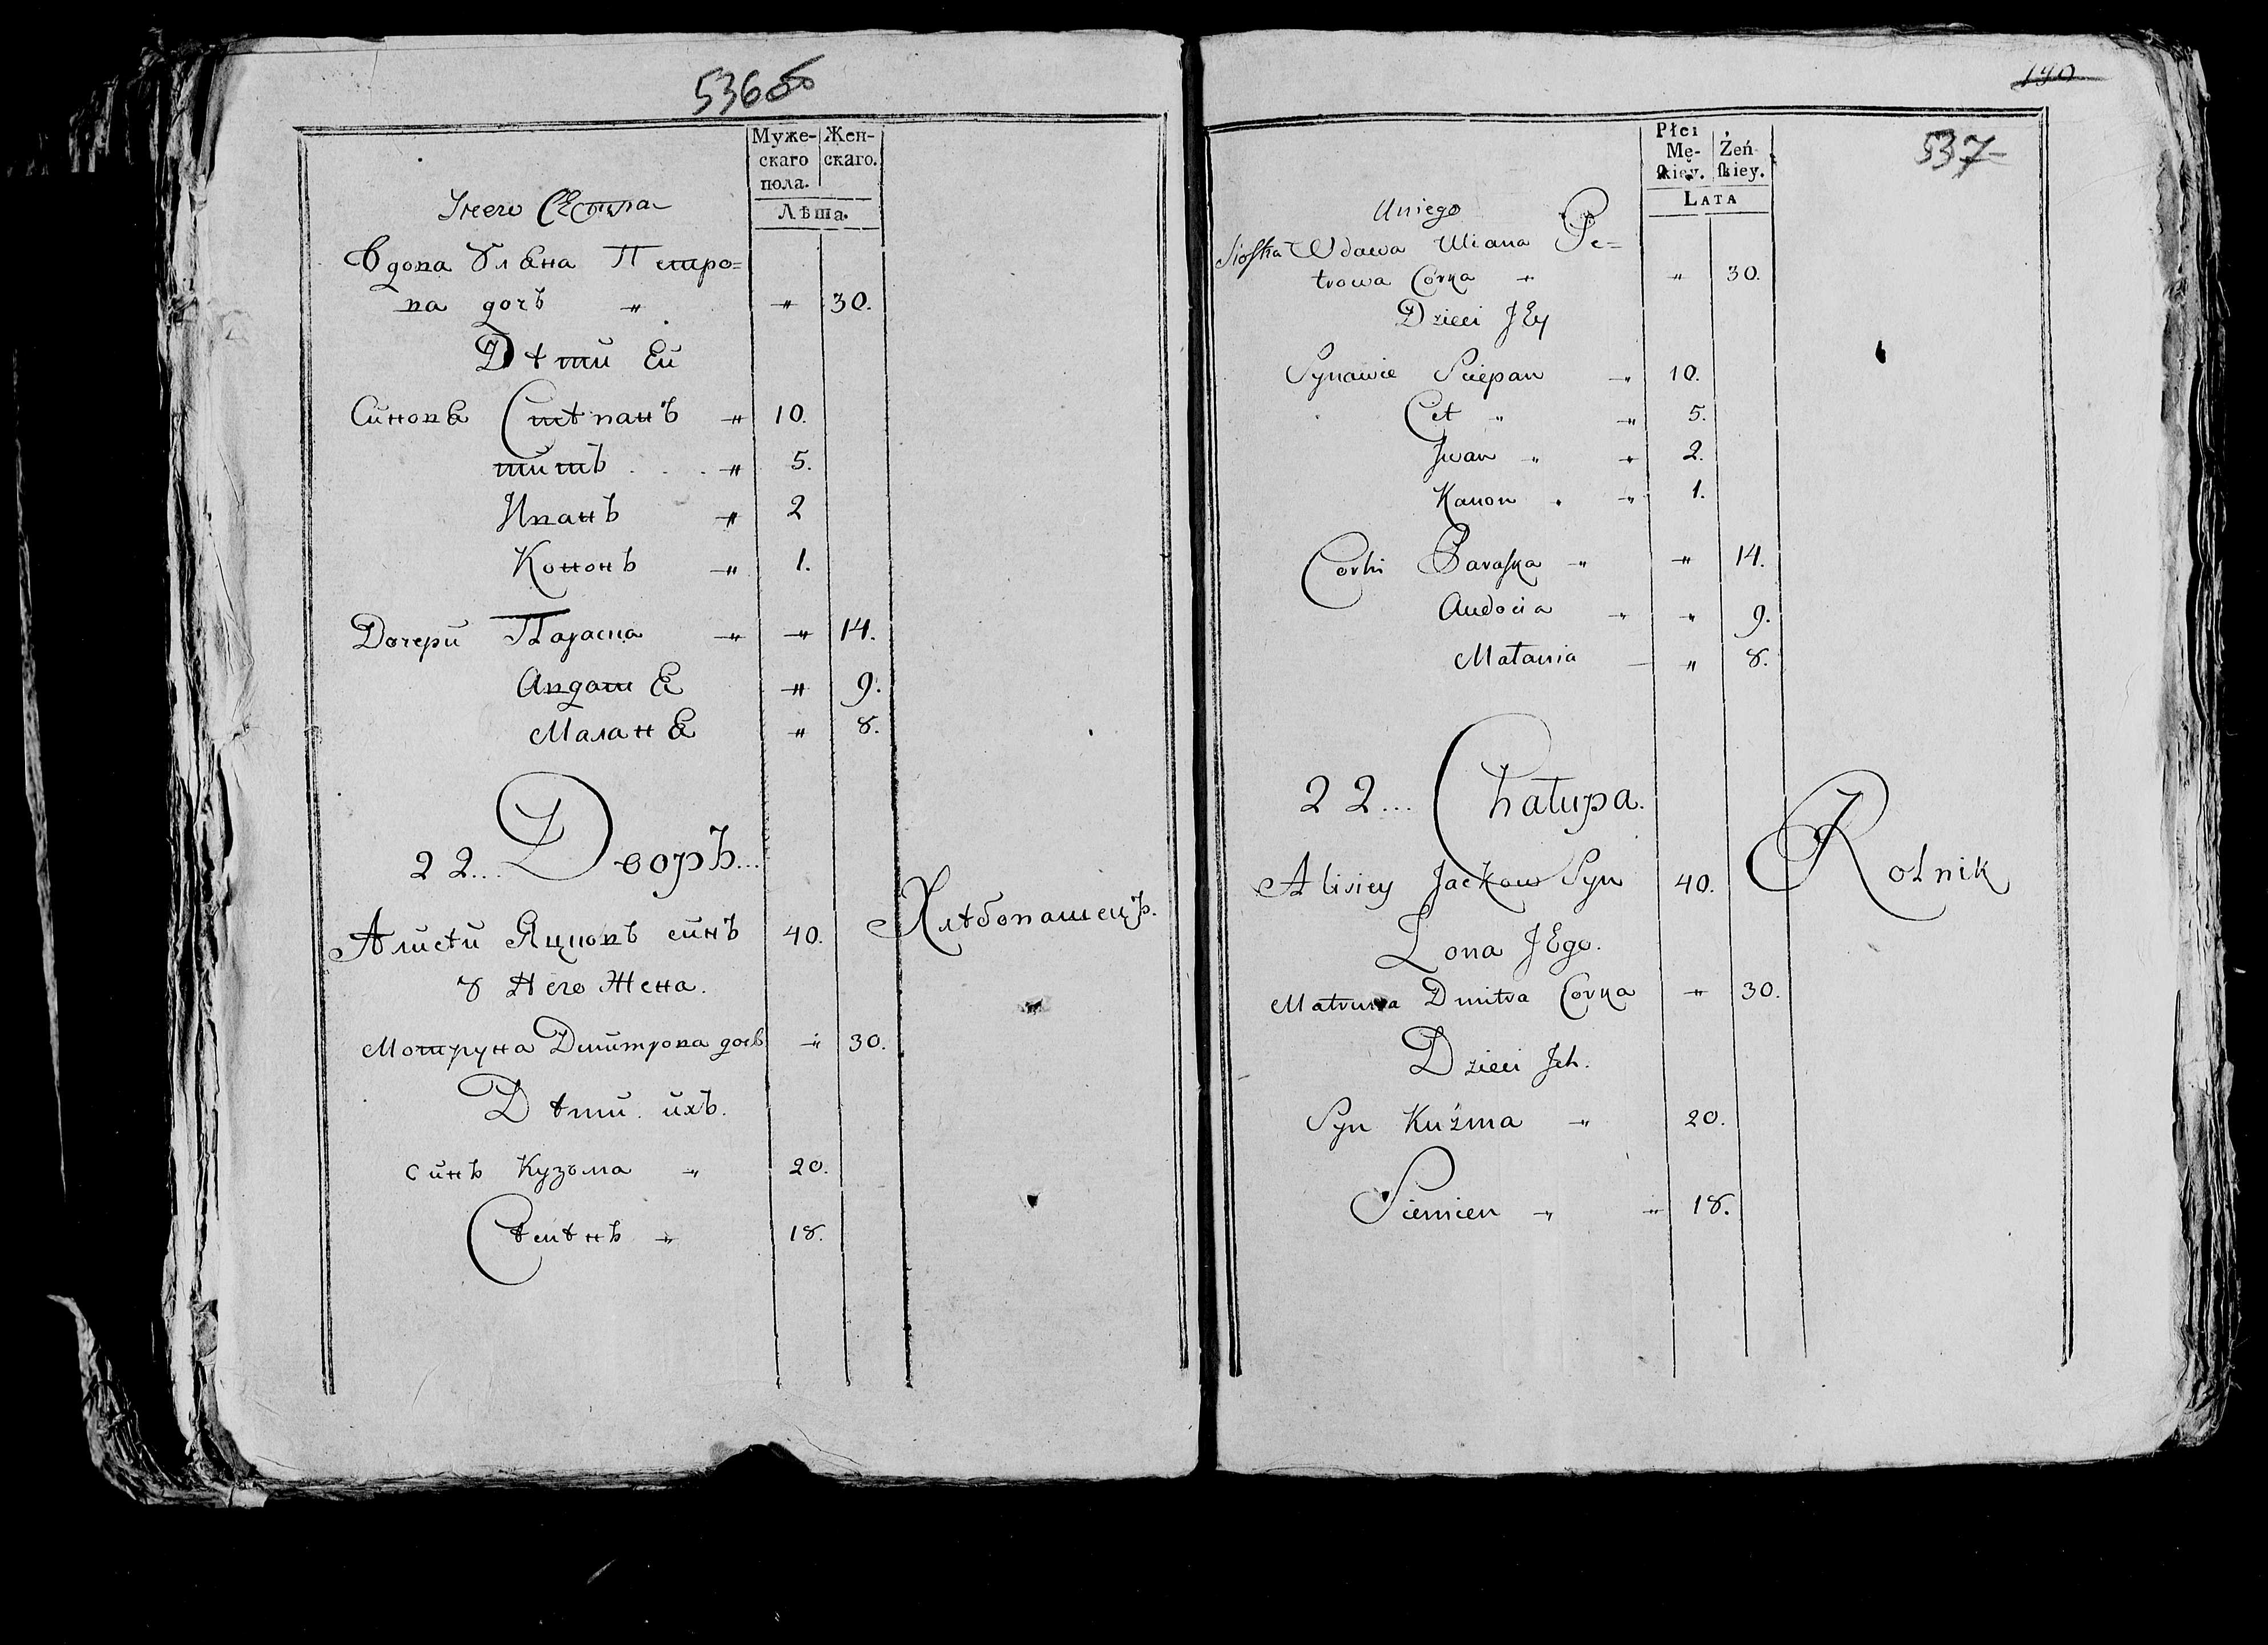 536об
Муже- Жен-
скаго скаго.
пола.
Лѣта.
Унего Сестра
Вдова Уляна Петро=
ва дочь " " 30.
Дѣти Ей
Синовя Стѣпанъ " 10.
титъ . . . " 5.
Иванъ " 2
Кононъ " 1.
Дочери Параска " " 14.
Авдотя " 9.
Маланя " 8.
22... Дворъ...
Алисѣй Яцковъ синъ 40. Хлѣбопашецъ.
У Него Жена.
Мотруна Дмитрова дочь " 30.
Дѣти ихъ.
синъ Кузъма " 20.
Сѣмѣнъ " 18.
190
537
Płci
Mę- Żeń
ſkiey. ſkiey.
LATA
Uniego
Siostra Wdawa Uliana Pe=
trowa Corka " " 30.
Dzieci JEy
Synawie Sciepan " 10.
Cit " " 5.
Jwan " " 2.
Kanon " " 1.
Corki Paraska " " 14.
Audocia " " 9.
Małania " 8.
22... Chałupa.
Alisiey Jackow Syn 40. Rolnik
Zona JEgo.
Matruna Dmitra Corka " 30.
Dzieci Jch.
Syn Kuźma " 20.
Siemien " " 18.